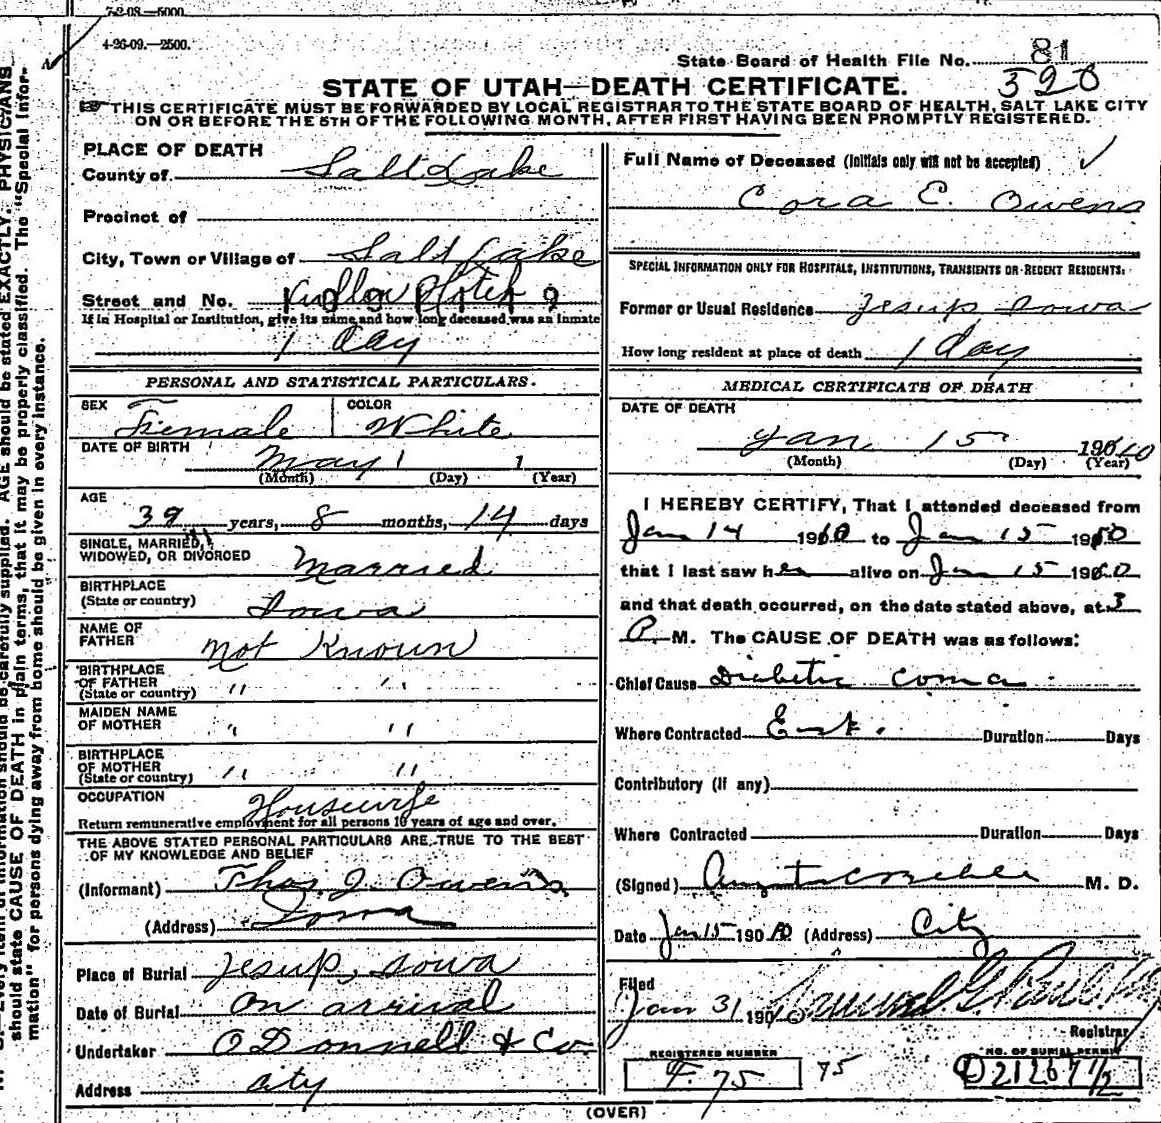 7-2-08.—5000.
4-26-09.—2500.
State Board of Health File No. 81
390
STATE OF UTAH—DEATH CERTIFICATE.
THIS CERTIFICATE MUST BE FORWARDED BY LOCAL REGISTRAR TO THE STATE BOARD OF HEALTH, SALT LAKE CITY
ON OR BEFORE THE 5TH OF THE FOLLOWING MONTH, AFTER FIRST HAVING BEEN PROMPTLY REGISTERED.
PLACE OF DEATH
County of Salt Lake
Precinct of
City, Town or Village of Salt Lake
Street and No.
If in Hospital or Institution, give its name and how long deceased was an inmate
1 day
PERSONAL AND STATISTICAL PARTICULARS.
SEX Female COLOR White
DATE OF BIRTH May 1 1
(Month) (Day) (Year)
AGE
39 years, 8 months, 14 days
SINGLE, MARRIED,
WIDOWED, OR DIVORCED Married
BIRTHPLACE
(State or country) Iowa
NAME OF
FATHER Not Known
BIRTHPLACE
OF FATHER
(State or country) " "
MAIDEN NAME
OF MOTHER " "
BIRTHPLACE
OF MOTHER
(State or country) " "
OCCUPATION Housewife
Return remunerative employment for all persons 10 years of age and over.
THE ABOVE STATED PERSONAL PARTICULARS ARE TRUE TO THE BEST
OF MY KNOWLEDGE AND BELIEF
(Informant) Thos. J. Owens
(Address) Iowa
Place of Burial Jesup, Iowa
Date of Burial On arrival
Undertaker O Donnell & Co.
Address City
Full Name of Deceased (Initials only will not be accepted)
Cora E. Owens
SPECIAL INFORMATION ONLY FOR HOSPITALS, INSTITUTIONS, TRANSIENTS OR RECENT RESIDENTS.
Former or Usual Residence Jesup Iowa
How long resident at place of death 1 day
MEDICAL CERTIFICATE OF DEATH
DATE OF DEATH
Jan 15 1910
(Month) (Day) (Year)
I HEREBY CERTIFY, That I attended deceased from
Jan 14 1910 to Jan 15 1910
that I last saw her alive on Jan 15 1910
and that death occurred, on the date stated above, at 3
P. M. The CAUSE OF DEATH was as follows:
Chief Cause Diabetic coma
Where Contracted Duration Days
Contributory (if any)
Where Contracted Duration Days
(Signed) M. D.
Date Jan 15 1910 (Address) City
Filed
Jan 31 190
Registrar
REGISTERED NUMBER
F. 75 75
NO. OF BURIAL PERMIT
D 21267 1/2
(OVER)
should state CAUSE OF DEATH in plain terms, that it may be properly classified. The "Special Infor-
mation" for persons dying away from home should be given in every instance.